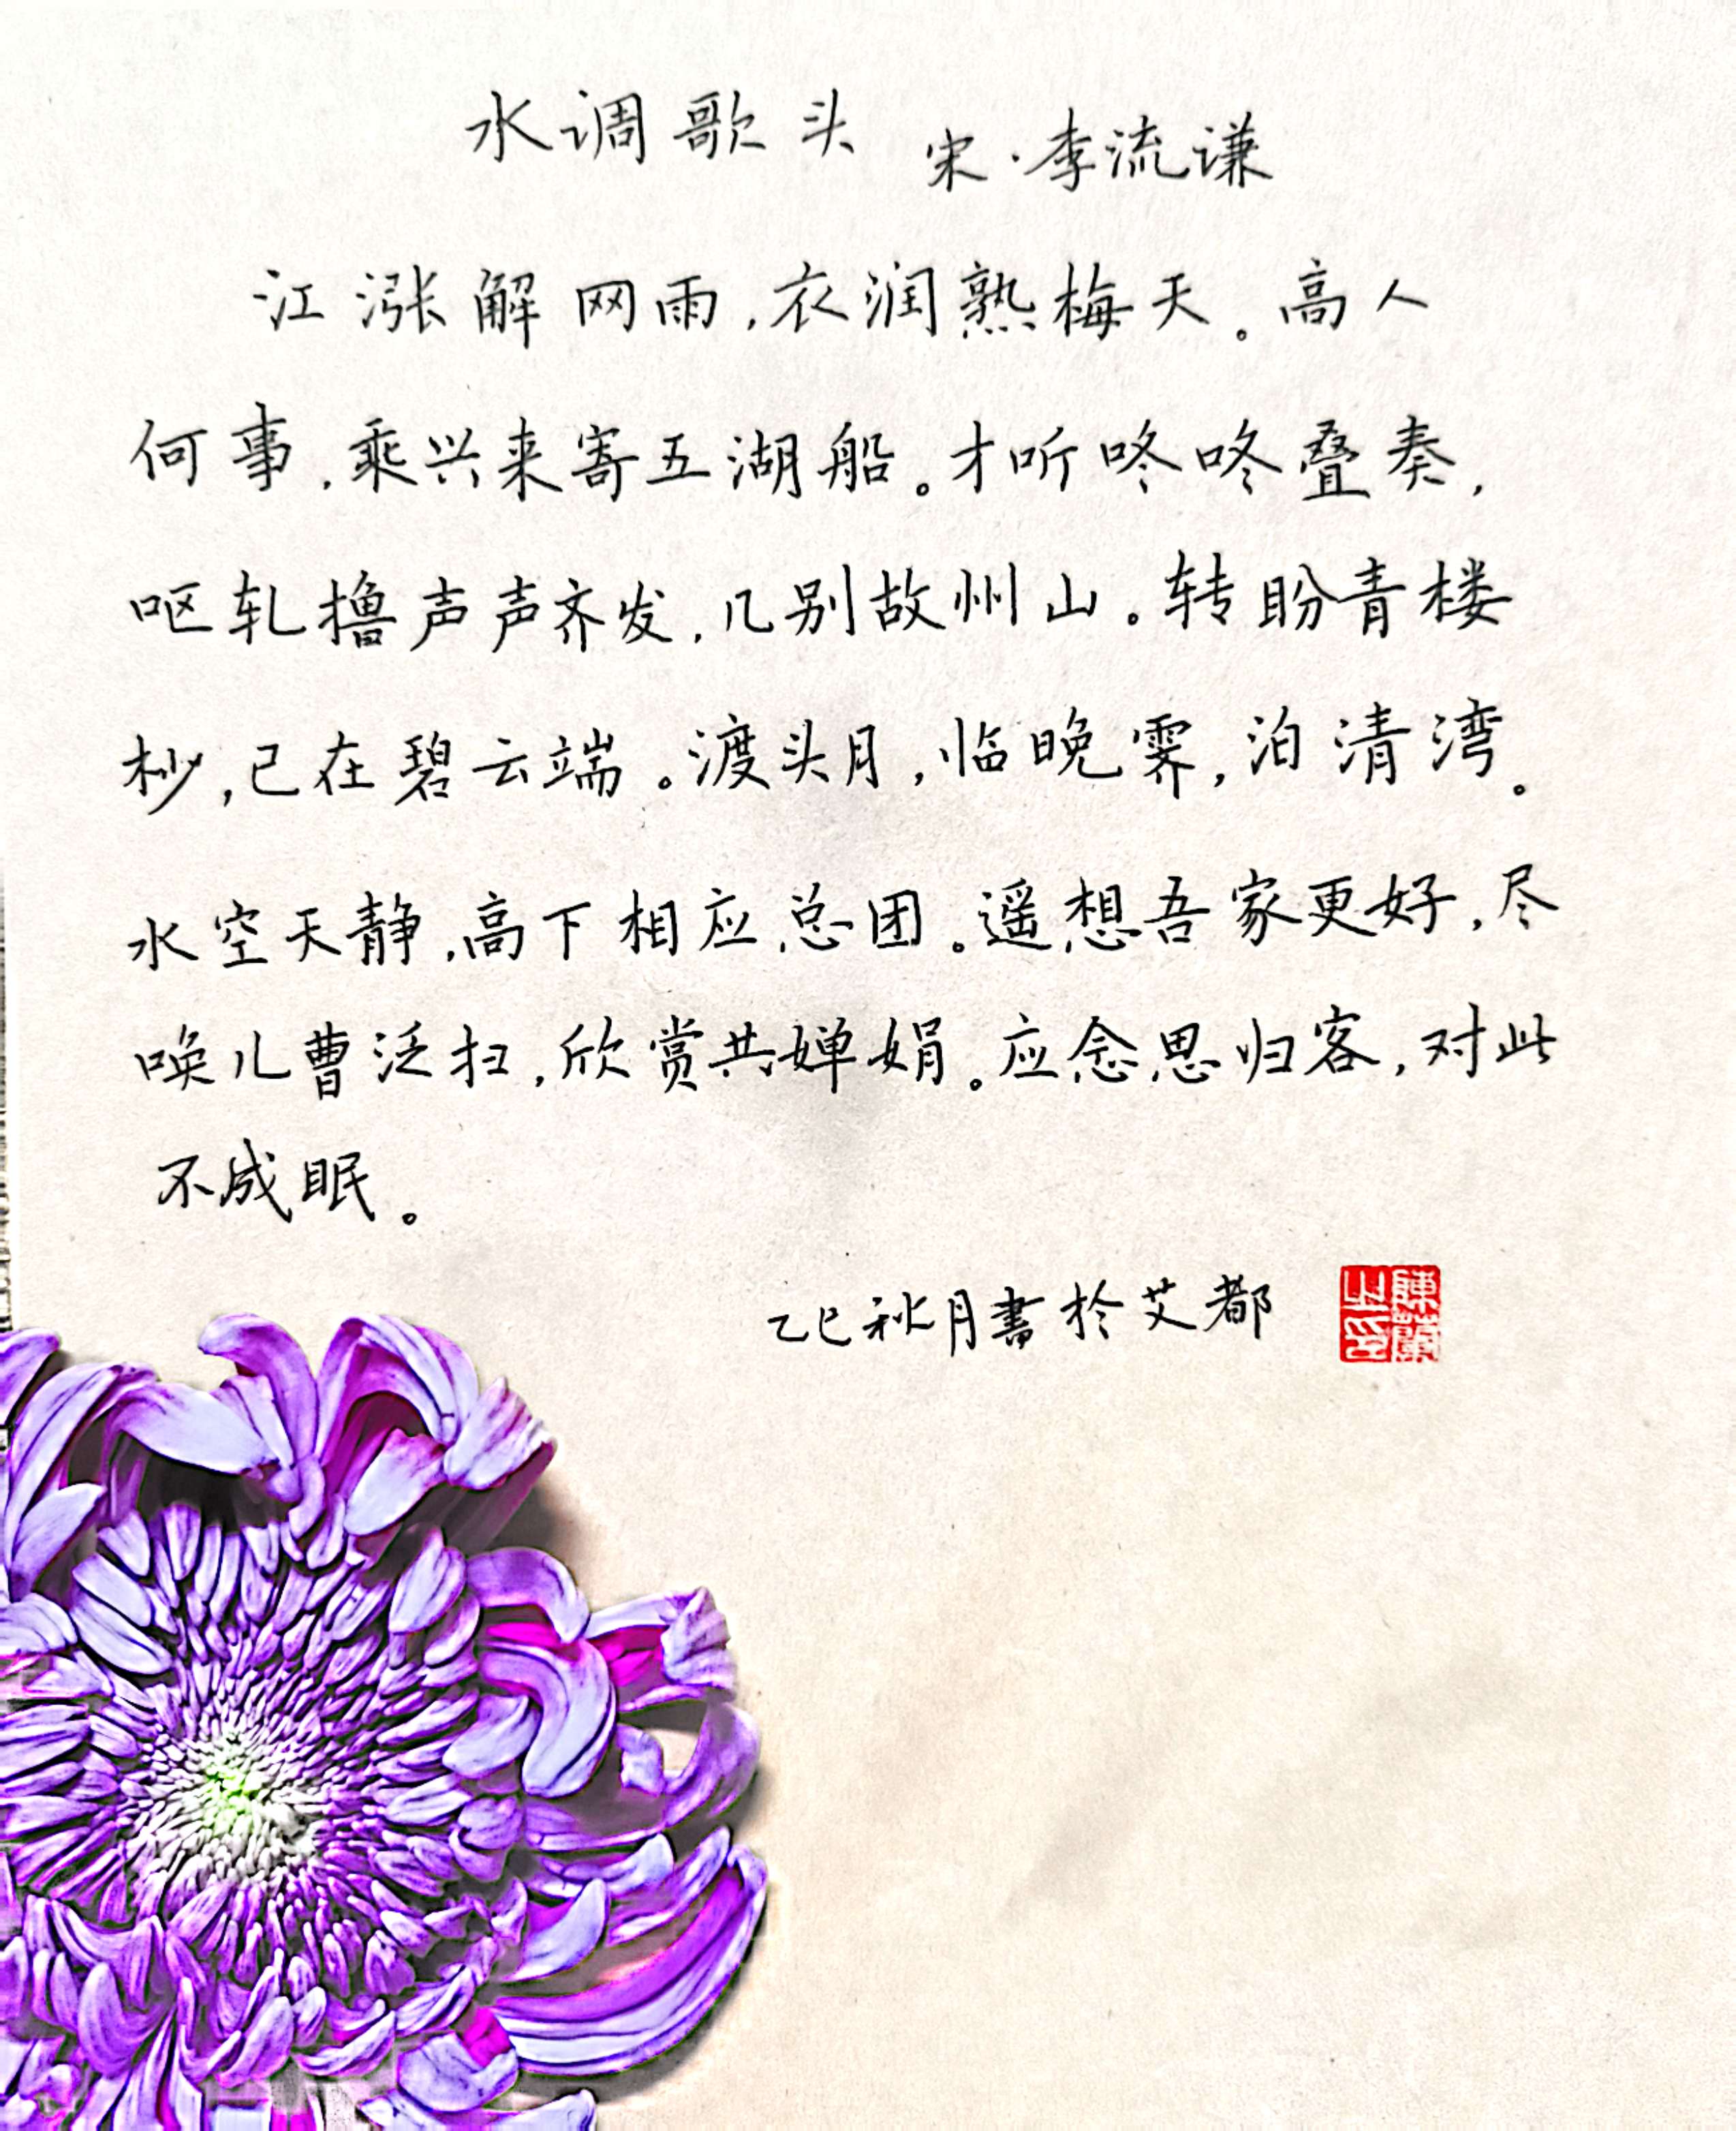 水调歌头 宋·李流谦
江涨解网雨,衣润熟梅天。高人
何事,乘兴来寄五湖船。才听咚咚叠奏,
呕轧撸声声齐发,几别故州山。转盼青楼
杪,已在碧云端。渡头月,临晚霁,泊清湾。
水空天静,高下相应总团。遥想吾家更好,尽
唤儿曹泛扫,欣赏共婵娟。应念思归客,对此
不成眠。
乙巳秋月書於艾都
陳蘭之印